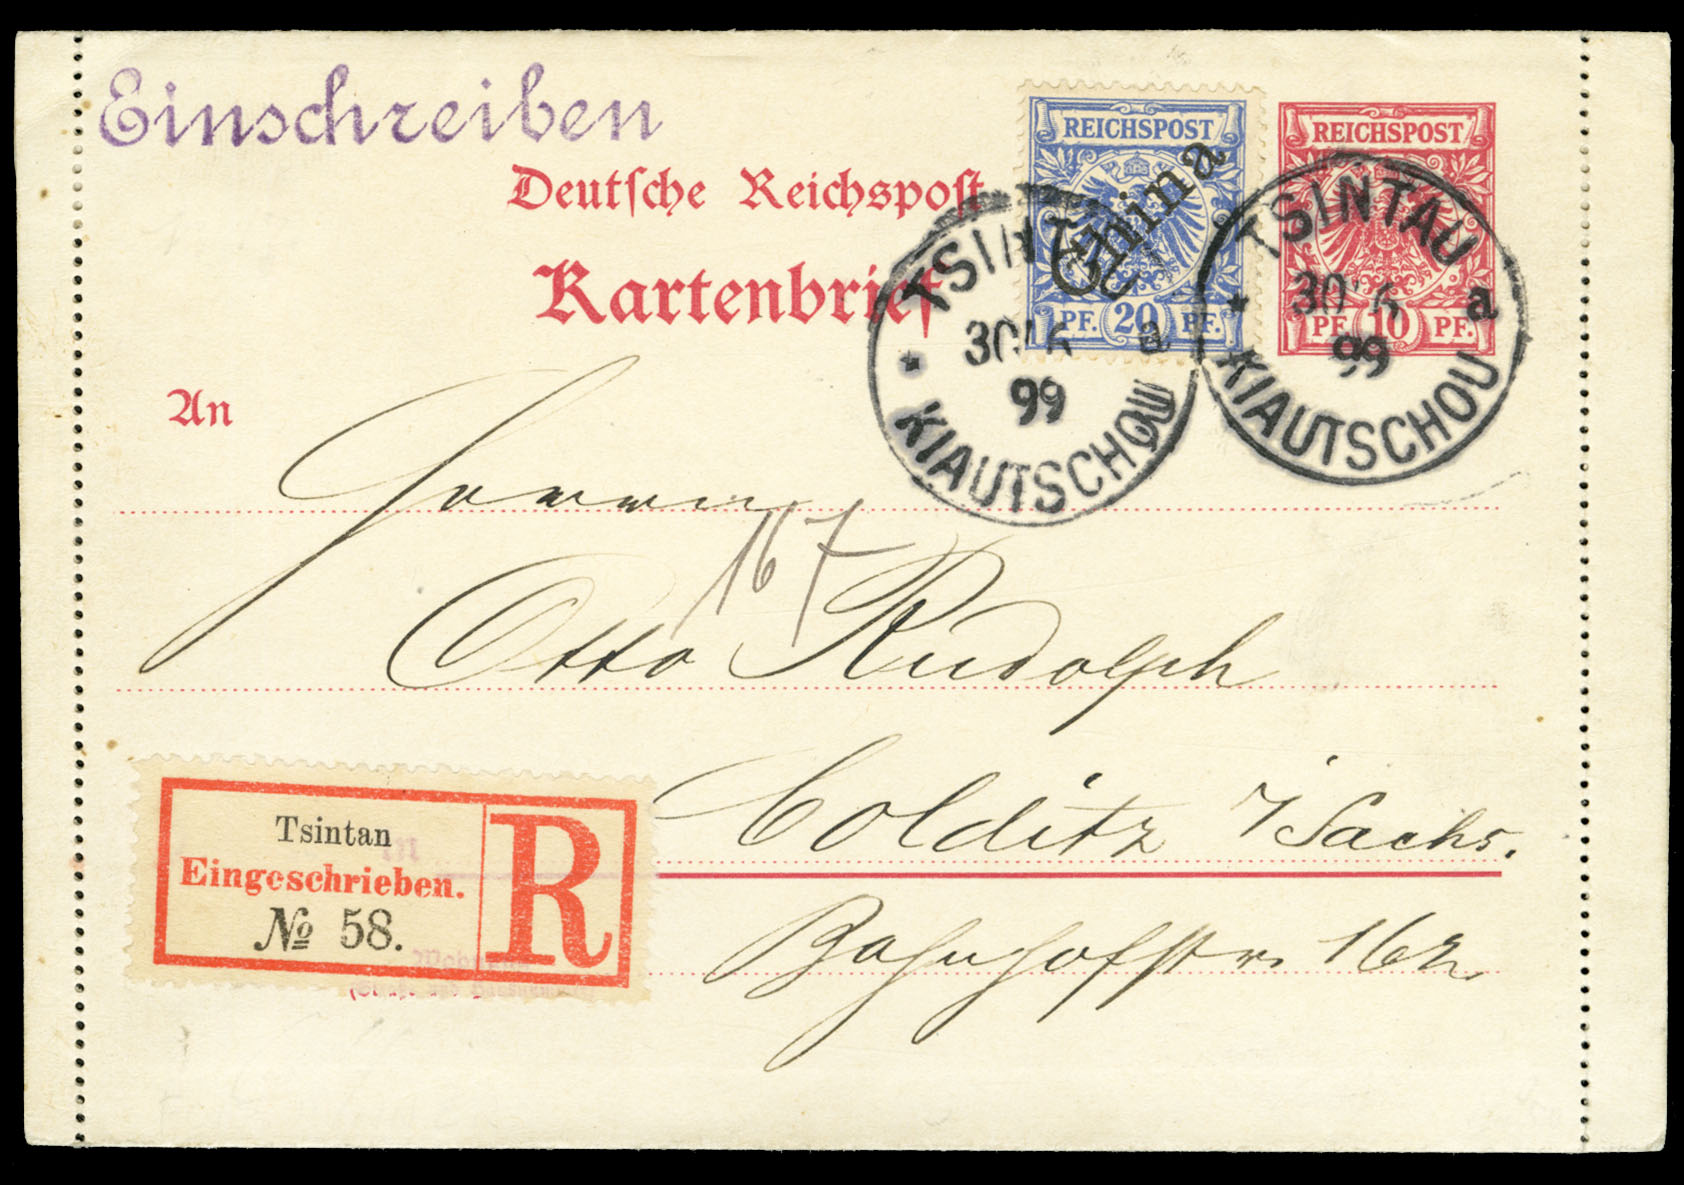 Einschreiben
Deutsche Reichspost
Kartenbrief
REICHSPOST
China
PF. 20 PF.
REICHSPOST
PF. 10 PF.
TSINTAU
99
KIAUTSCHOU
TSINTAU
a
99
KIAUTSCHOU
An
Herrn
167
Otto Rudolph
Colditz i/Sachs.
Bahnhofstr. 162
Tsintan
Eingeschrieben.
№ 58.
R